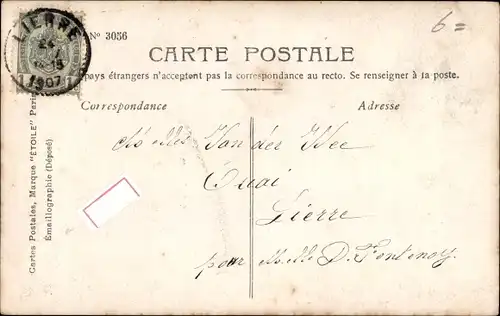 LIERRE
24
1907
N° 3056
6=
CARTE POSTALE
pays étrangers n'acceptent pas la correspondance au recto. Se renseigner à la poste.
Correspondance
Adresse
Van des Wee
Quai
Lierre
pour Melle D. Fontenoy
Cartes Postales, Marque "ÉTOILE" Paris
Émaillographie (Déposé)